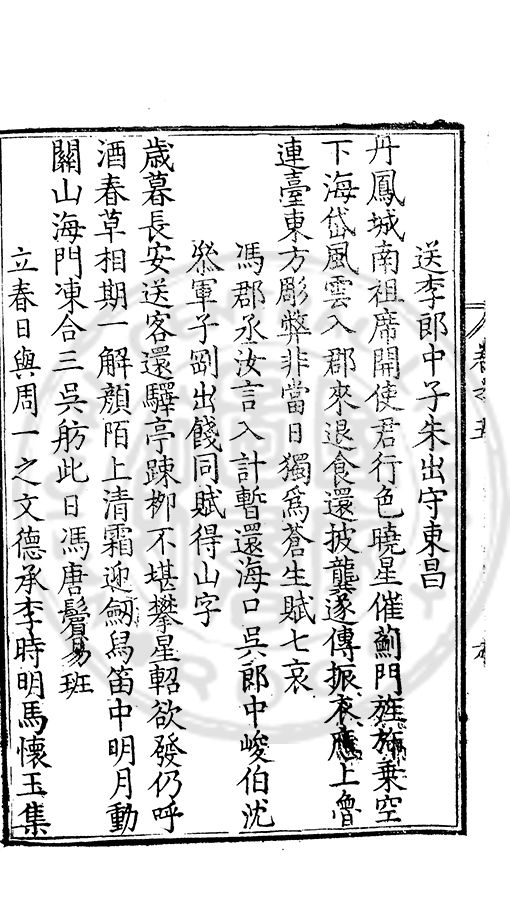 送李郎中子朱出守東昌
丹鳳城南祖席開使君行色曉星催薊門旌旆乗空
下海岱風雲入郡來退食還披龔遂傳振衣應上魯
連臺東方彫弊非當日獨爲蒼生賦七哀
馮郡丞汝言入計暫還海口吳郎中峻伯沈
叅軍子劉出餞同賦得山字
歳暮長安送客還驛亭踈栁不堪攀星軺欲發仍呼
酒春草相期一解顔陌上清霜迎劒舄笛中明月動
關山海門凍合三吳舫此日馮唐鬢易班
立春日與周一之文德承李時明馬懷玉集